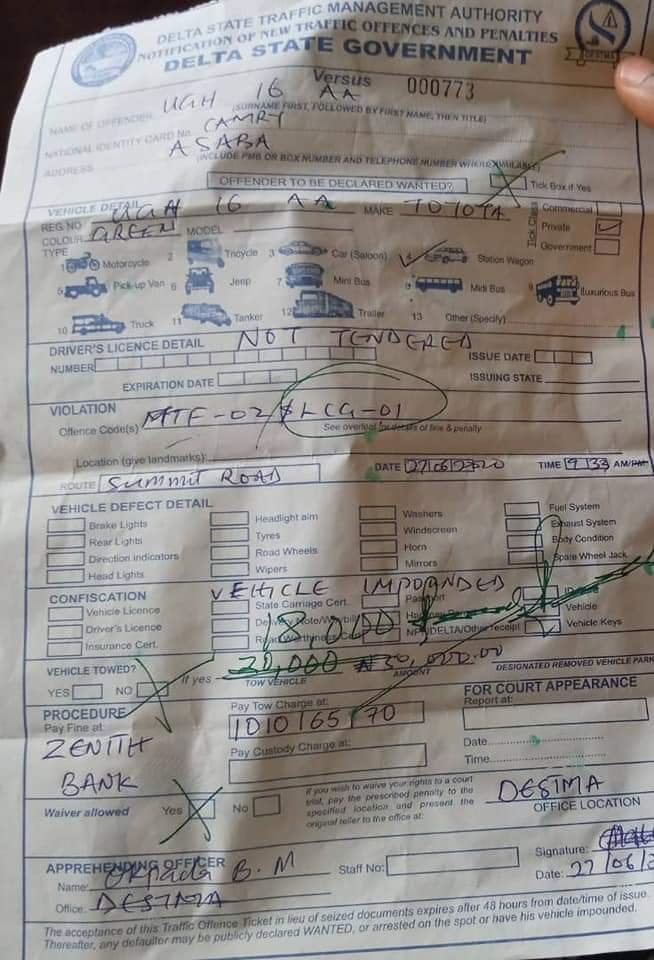 DELTA STATE TRAFFIC MANAGEMENT AUTHORITY
NOTIFICATION OF NEW TRAFFIC OFFENCES AND PENALTIES
DELTA STATE GOVERNMENT
Versus 000773
UGH 16 AA
NAME OF OFFENDER
(SURNAME FIRST, FOLLOWED BY FIRST NAME, THEN TITLE)
NATIONAL IDENTITY CARD No. CAMRY
ADDRESS ASABA
(INCLUDE PMB OR BOX NUMBER AND TELEPHONE NUMBER WHERE AVAILABLE)
OFFENDER TO BE DECLARED WANTED? Tick Box if Yes
VEHICLE DETAIL
REG NO UGH 16 AA MAKE TOYOTA
COLOUR GREEN MODEL
TICK CLASS Commercial
Private
Government
TYPE
1 Motorcycle 2 Tricycle 3 Car (Saloon) 4 Station Wagon
5 Pick-up Van 6 Jeep 7 Mini Bus 8 Midi Bus 9 Luxurious Bus
10 Truck 11 Tanker 12 Trailer 13 Other (Specify)
DRIVER'S LICENCE DETAIL NOT TENDERED
NUMBER ISSUE DATE
EXPIRATION DATE ISSUING STATE
VIOLATION
Offence Code(s) MTF-02/ LCG-01
See overleaf for details of fine & penalty
Location (give landmarks):
ROUTE SUMMIT ROAD DATE 27/06/2020 TIME 9:33 AM/PM
VEHICLE DEFECT DETAIL
Brake Lights Headlight aim Washers Fuel System
Rear Lights Tyres Windscreen Exhaust System
Direction indicators Road Wheels Horn Body Condition
Head Lights Wipers Mirrors Spare Wheel Jack
CONFISCATION VEHICLE IMPOUNDED
Vehicle Licence State Carriage Cert.
Driver's Licence Vehicle
Insurance Cert. Vehicle Keys
VEHICLE TOWED?
YES NO If yes 20,000 ₦30,000.00
TOW VEHICLE AMOUNT DESIGNATED REMOVED VEHICLE PARK
PROCEDURE
Pay Fine at:
ZENITH
BANK
Pay Tow Charge at:
1010165170
Pay Custody Charge at:
FOR COURT APPEARANCE
Report at:
Date
Time
Waiver allowed Yes No
If you wish to waive your rights to a court
trial, pay the prescribed penalty to the
specified location and present the
original teller to the office at:
DESTMA
OFFICE LOCATION
APPREHENDING OFFICER
Name: B. M
Office: DESTMA
Staff No:
Signature:
Date: 27/06/2
The acceptance of this Traffic Offence Ticket in lieu of seized documents expires after 48 hours from date/time of issue.
Thereafter, any defaulter may be publicly declared WANTED, or arrested on the spot or have his vehicle impounded.